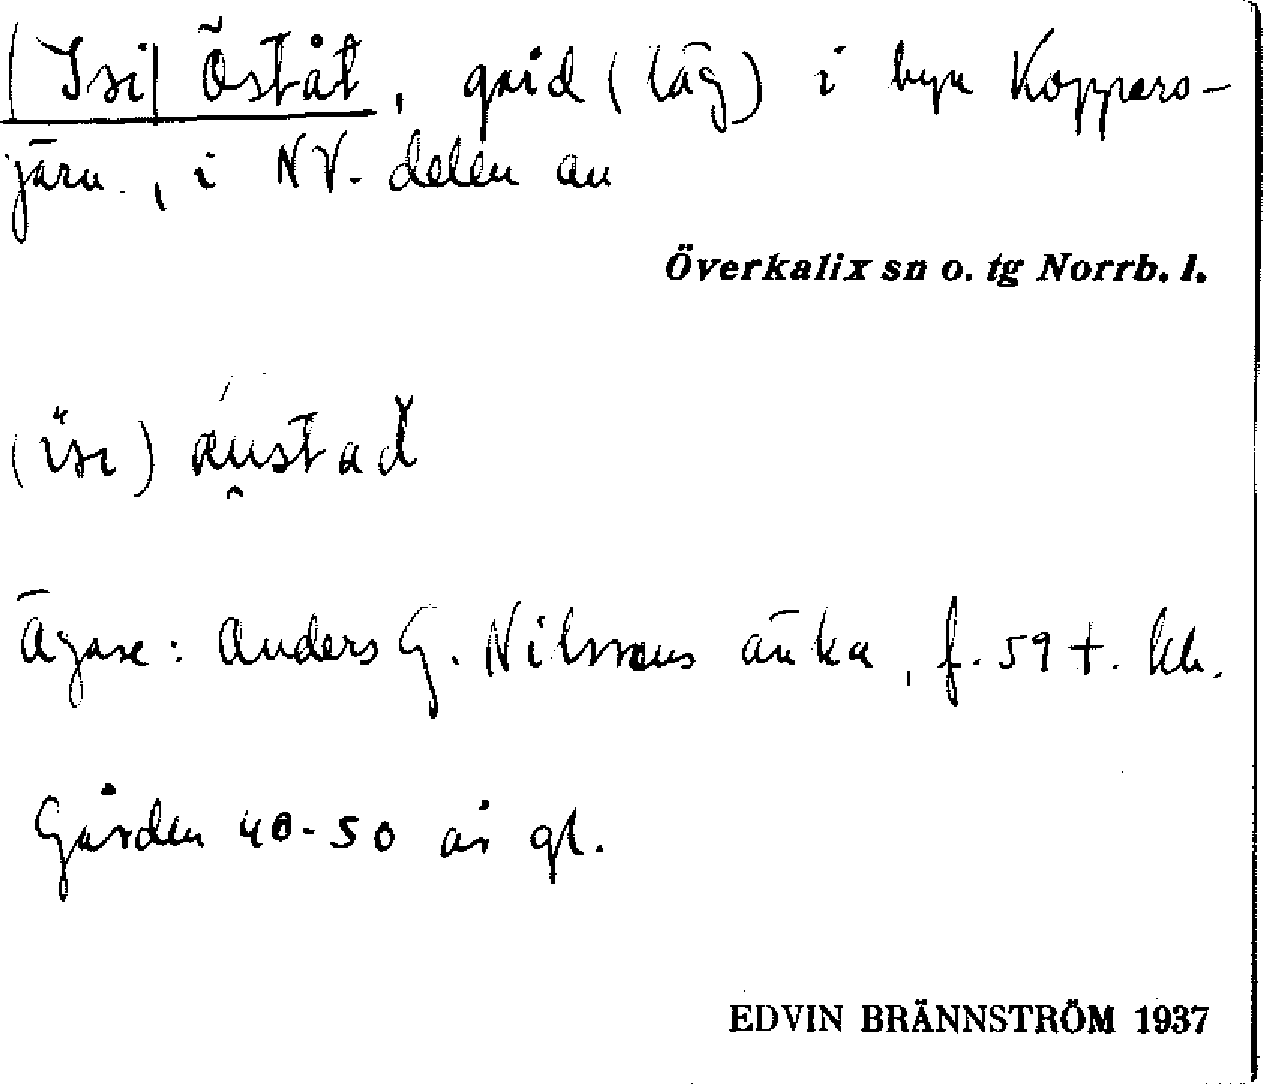 (Isi) Öståt, gård (läg) i byn Koppars-
järv., i NV. delen av
Överkalix sn o. tg Norrb. l.
Ägare: Anders G. Nilssons änka, f. 59 t. kl.
Gården 40-50 år gl.
EDVIN BRÄNNSTRÖM 1937